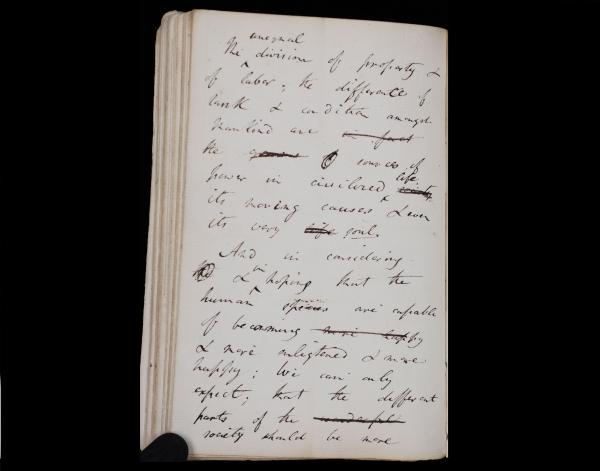 unequal
The division of property &
of labor, the difference of
rank & condition amongst
mankind are in fact
the sources of
power in civilized life society
its moving causes & even
its very life soul.
And in considering
& in hoping that the
human species are capable
of becoming more happy
& more enlightened & more
happy; We can only
expect; that the different
parts of the wonderful
society should be more